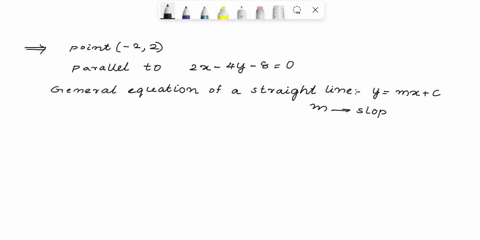 ⇒ point (-2, 2)
parallel to 2x - 4y - 8 = 0
General equation of a straight line:- y = mx + c
m → slop